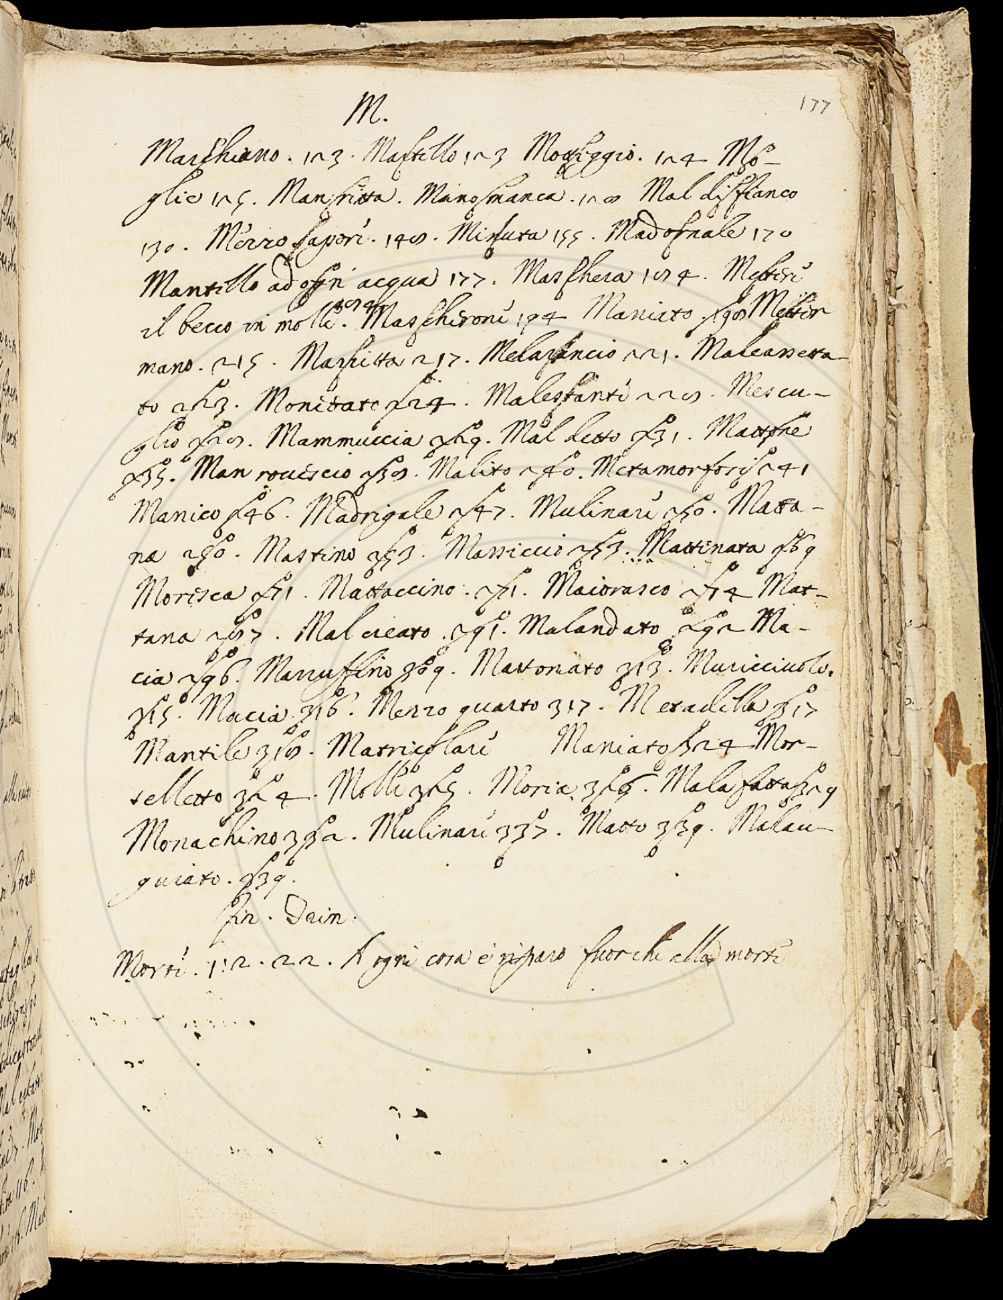 M.
177
Maschiano. 123. Mastillo 123 Motteggio. 124 Mo-
glie 125. Manritta. Mano manca. 128 Mal di fianco
130. Mezzo sapori. 148. Misura 155. Mad ornale 170
Mantello ad ogn' acqua 177. Maschera 184. Metteri
il becco in molle. Mascheroni 194 Maniato 208 Metter
mano. 215. Marfitta 217. Melarancio 221. Malcanseta-
to 223. Moneta 224. Malestanti 228. Mescu-
glio 228. Mammuccia 229. Mal detto 231. Mattone
235. Man rovescio 238. Malito 240. Metamorfosi 241
Manico 246. Madrigale 247. Mulinari 250. Matta-
na 250. Mastino 253. Massiccio 253. Mattinata 269
Moresca 271. Mattaccino. 271. Maiorasco 274 Mat-
tana 287. Mal creato. 291. Malandato 292 Ma-
cia 296. Marruffino 309. Mattonato 313. Muricciuolo.
315. Macia 316. Mezzo quarto 317. Metadella 317
Mantile 318. Matricolari Maniato 324 Mor-
selletto 324. Molle 325. Moria 326. Mala fatta 329
Monachino 332. Mulinari 337. Matto 339. Malau-
guiato. 339.
fin. Dain.
Morti. 1:2. 22. A ogni cosa è riparo fuor che alla morte